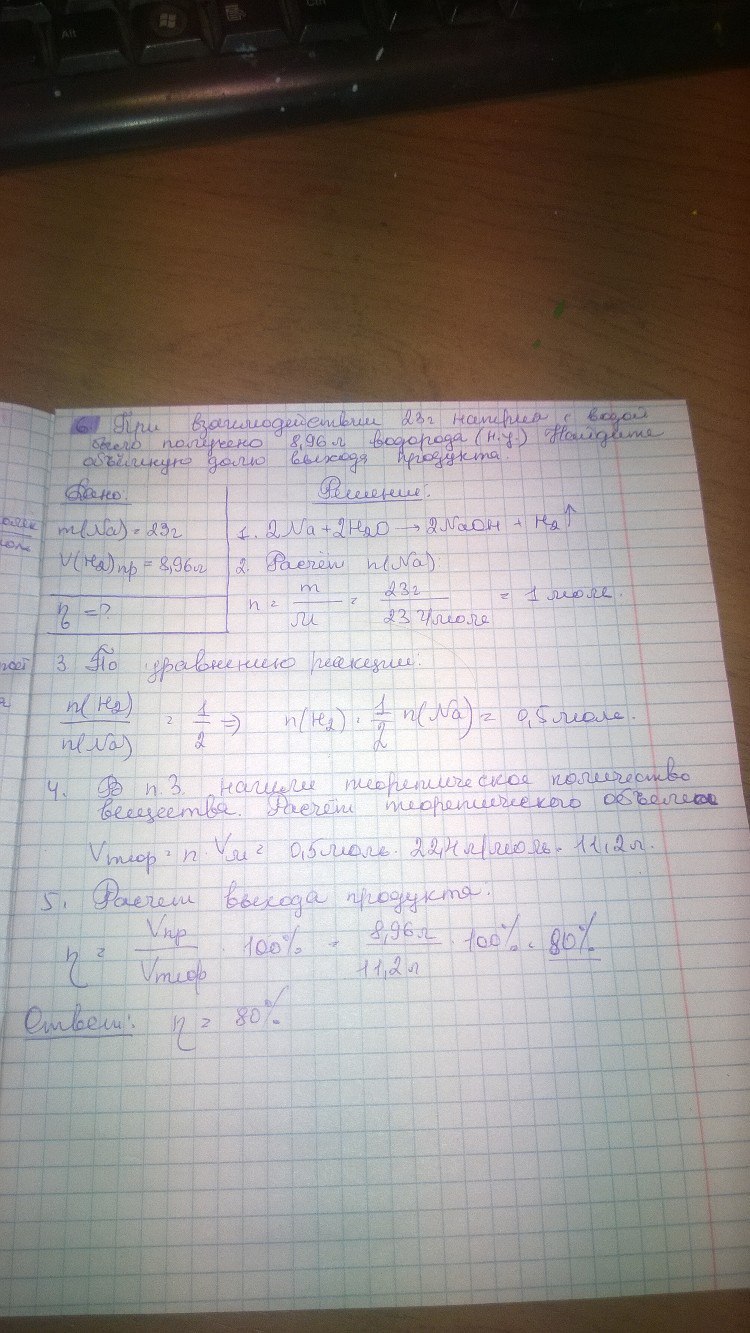 Alt
6 При взаимодействии 23г натрия с водой
было получено 8,96 л водорода (н.у.) Найдите
объёмную долю выхода продукта.
Дано:
m(Na) = 23г
V(H₂)пр = 8,96л
η = ?
Решение:
1. 2Na + 2H₂O → 2NaOH + H₂↑
2. Расчёт n(Na)
n = m/M = 23г/23 г/моль = 1 моль.
3 По уравнению реакции:
n(H₂)/n(Na) = 1/2 ⇒ n(H₂) = 1/2 n(Na) = 0,5 моль.
4. В п.3. нашли теоретическое количество
вещества. Расчёт теоретического объёма
Vтеор = n · Vм = 0,5 моль · 22,4 л/моль = 11,2 л.
5. Расчет выхода продукта.
η = Vпр/Vтеор 100% = 8,96 л/11,2 л · 100% = 80%
Ответ: η = 80%